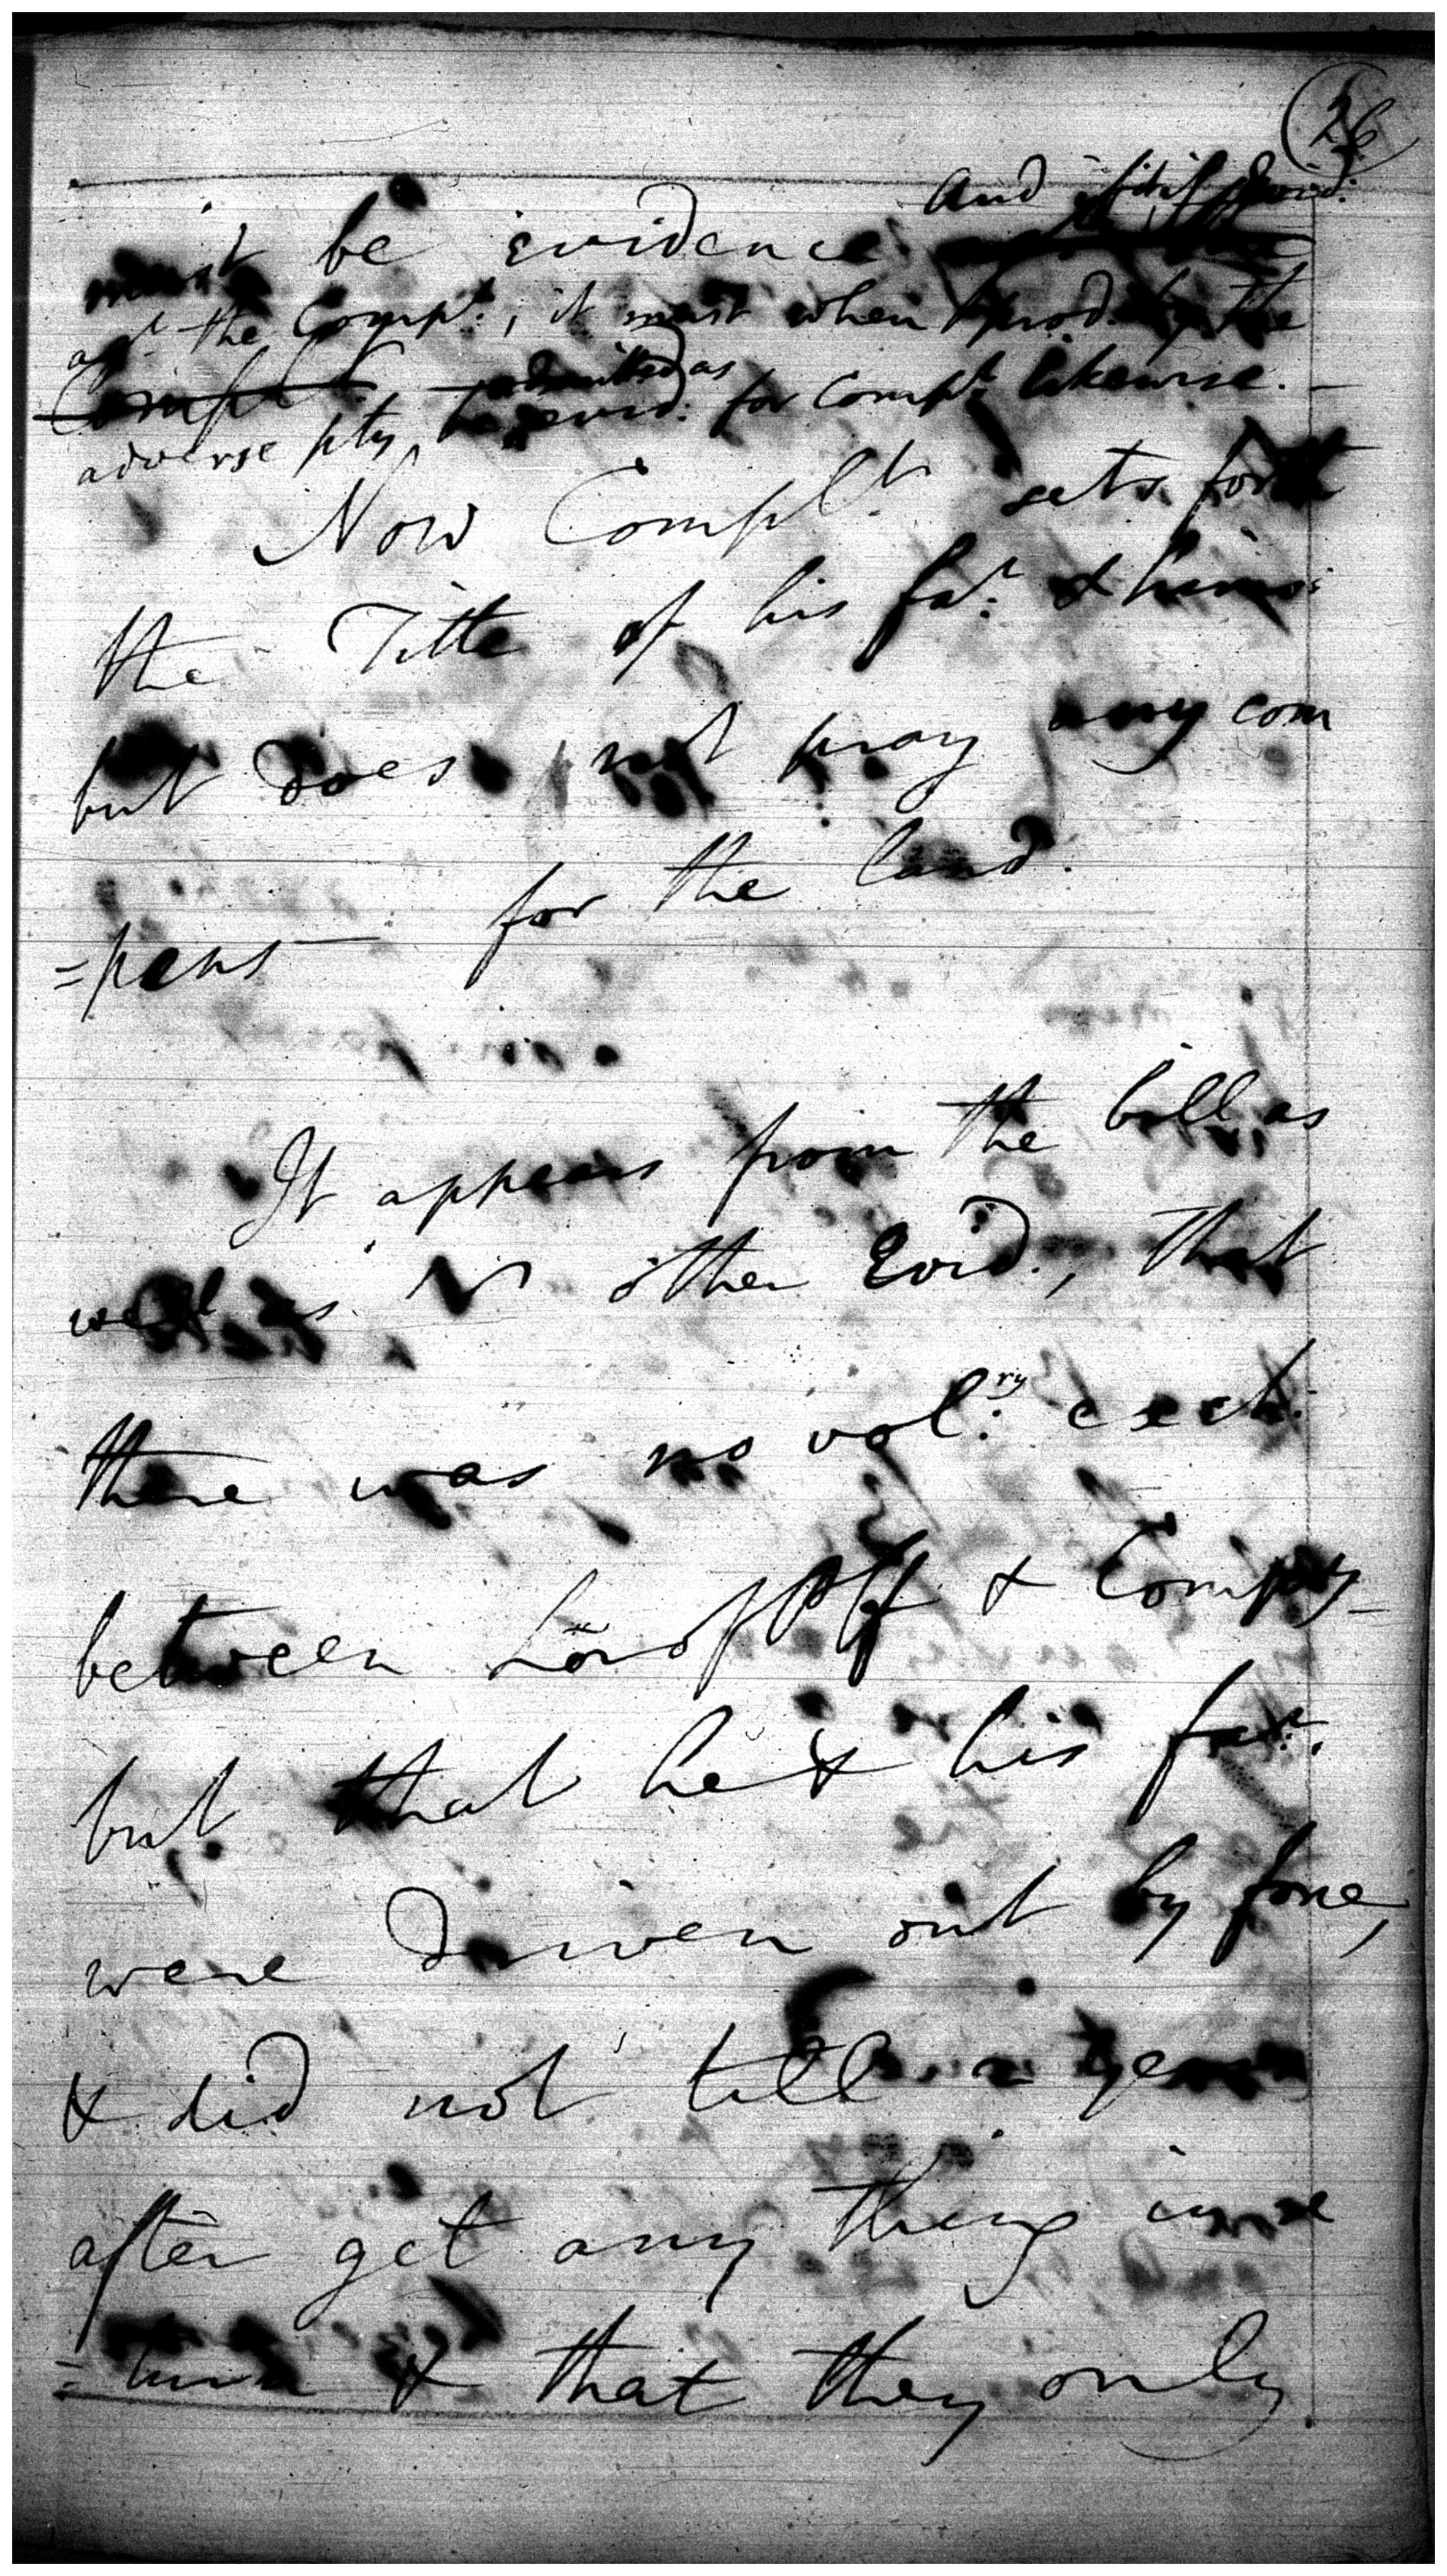 26
And if it is evid:
must be evidence
agt. the Complt., it must when prod. by the
Complt.
adverse pty, be admitted as evid: for Complt. likewise. —
Now Complt. sets forth
the Title of his far. & hims:
but does not pray any com
=pens— for the land.
It appears from the bill as
well as other Evid., that
there was no vol:ry exch:
between & Comp
but that he & his far.
were driven out by force,
& did not till a year
after get any thing in re
=turn & that they only